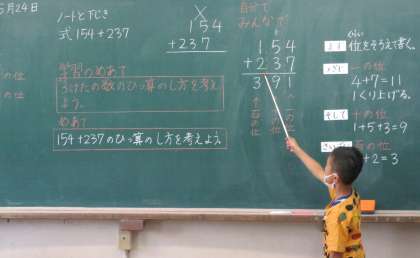 5月24日
ノートと下じき
式 154+237
154
+237
学習のめあて
3けたの数のひっ算のし方を考えよう。
めあて
154+237のひっ算のし方を考えよう。
自分で
みんなで
154
+237
391
一の位
十の位
百の位
位をそろえて書く。
一の位
4+7=11
1くり上げる。
そして
十の位
1+5+3=9
百の位
+2=3
の位
の位